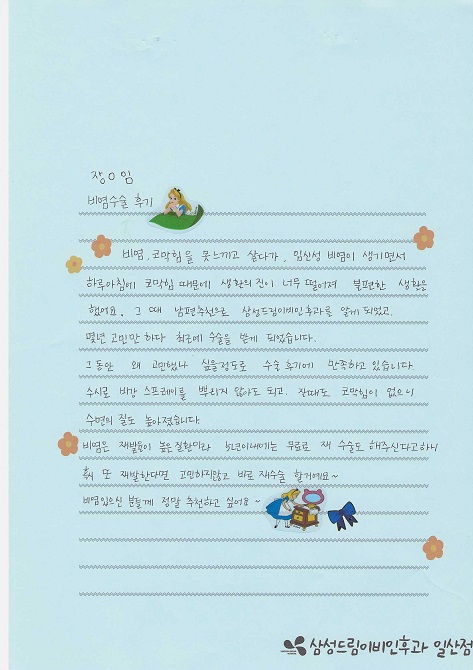 장O임
비염수술 후기
비염, 코막힘을 못느끼고 살다가, 임신성 비염이 생기면서
하루아침에 코막힘 때문에 생활의 진이 너무 떨어져 불편한 생활을
했어요. 그 때 남편추천으로 삼성드림이비인후과를 알게 되었고.
몇년 고민만 하다 최근에 수술을 받게 되었습니다.
그동안 왜 고민했나 싶을정도로 수술 후기에 만족하고 있습니다
수시로 비강 스프레이를 뿌리지 않아도 되고. 잠때도 코막힘이 없으니
수면의 질도 높아졌습니다.
비염은 재발율이 높은 질환이라 5년이내에는 무료로 재 수술도 해주신다고하니
혹시 또 재발한다면 고민하지않고 바로 재수술 할거예요~
비염있으신 분들께 정말 추천하고 싶어요~
삼성드림이비인후과 일산점